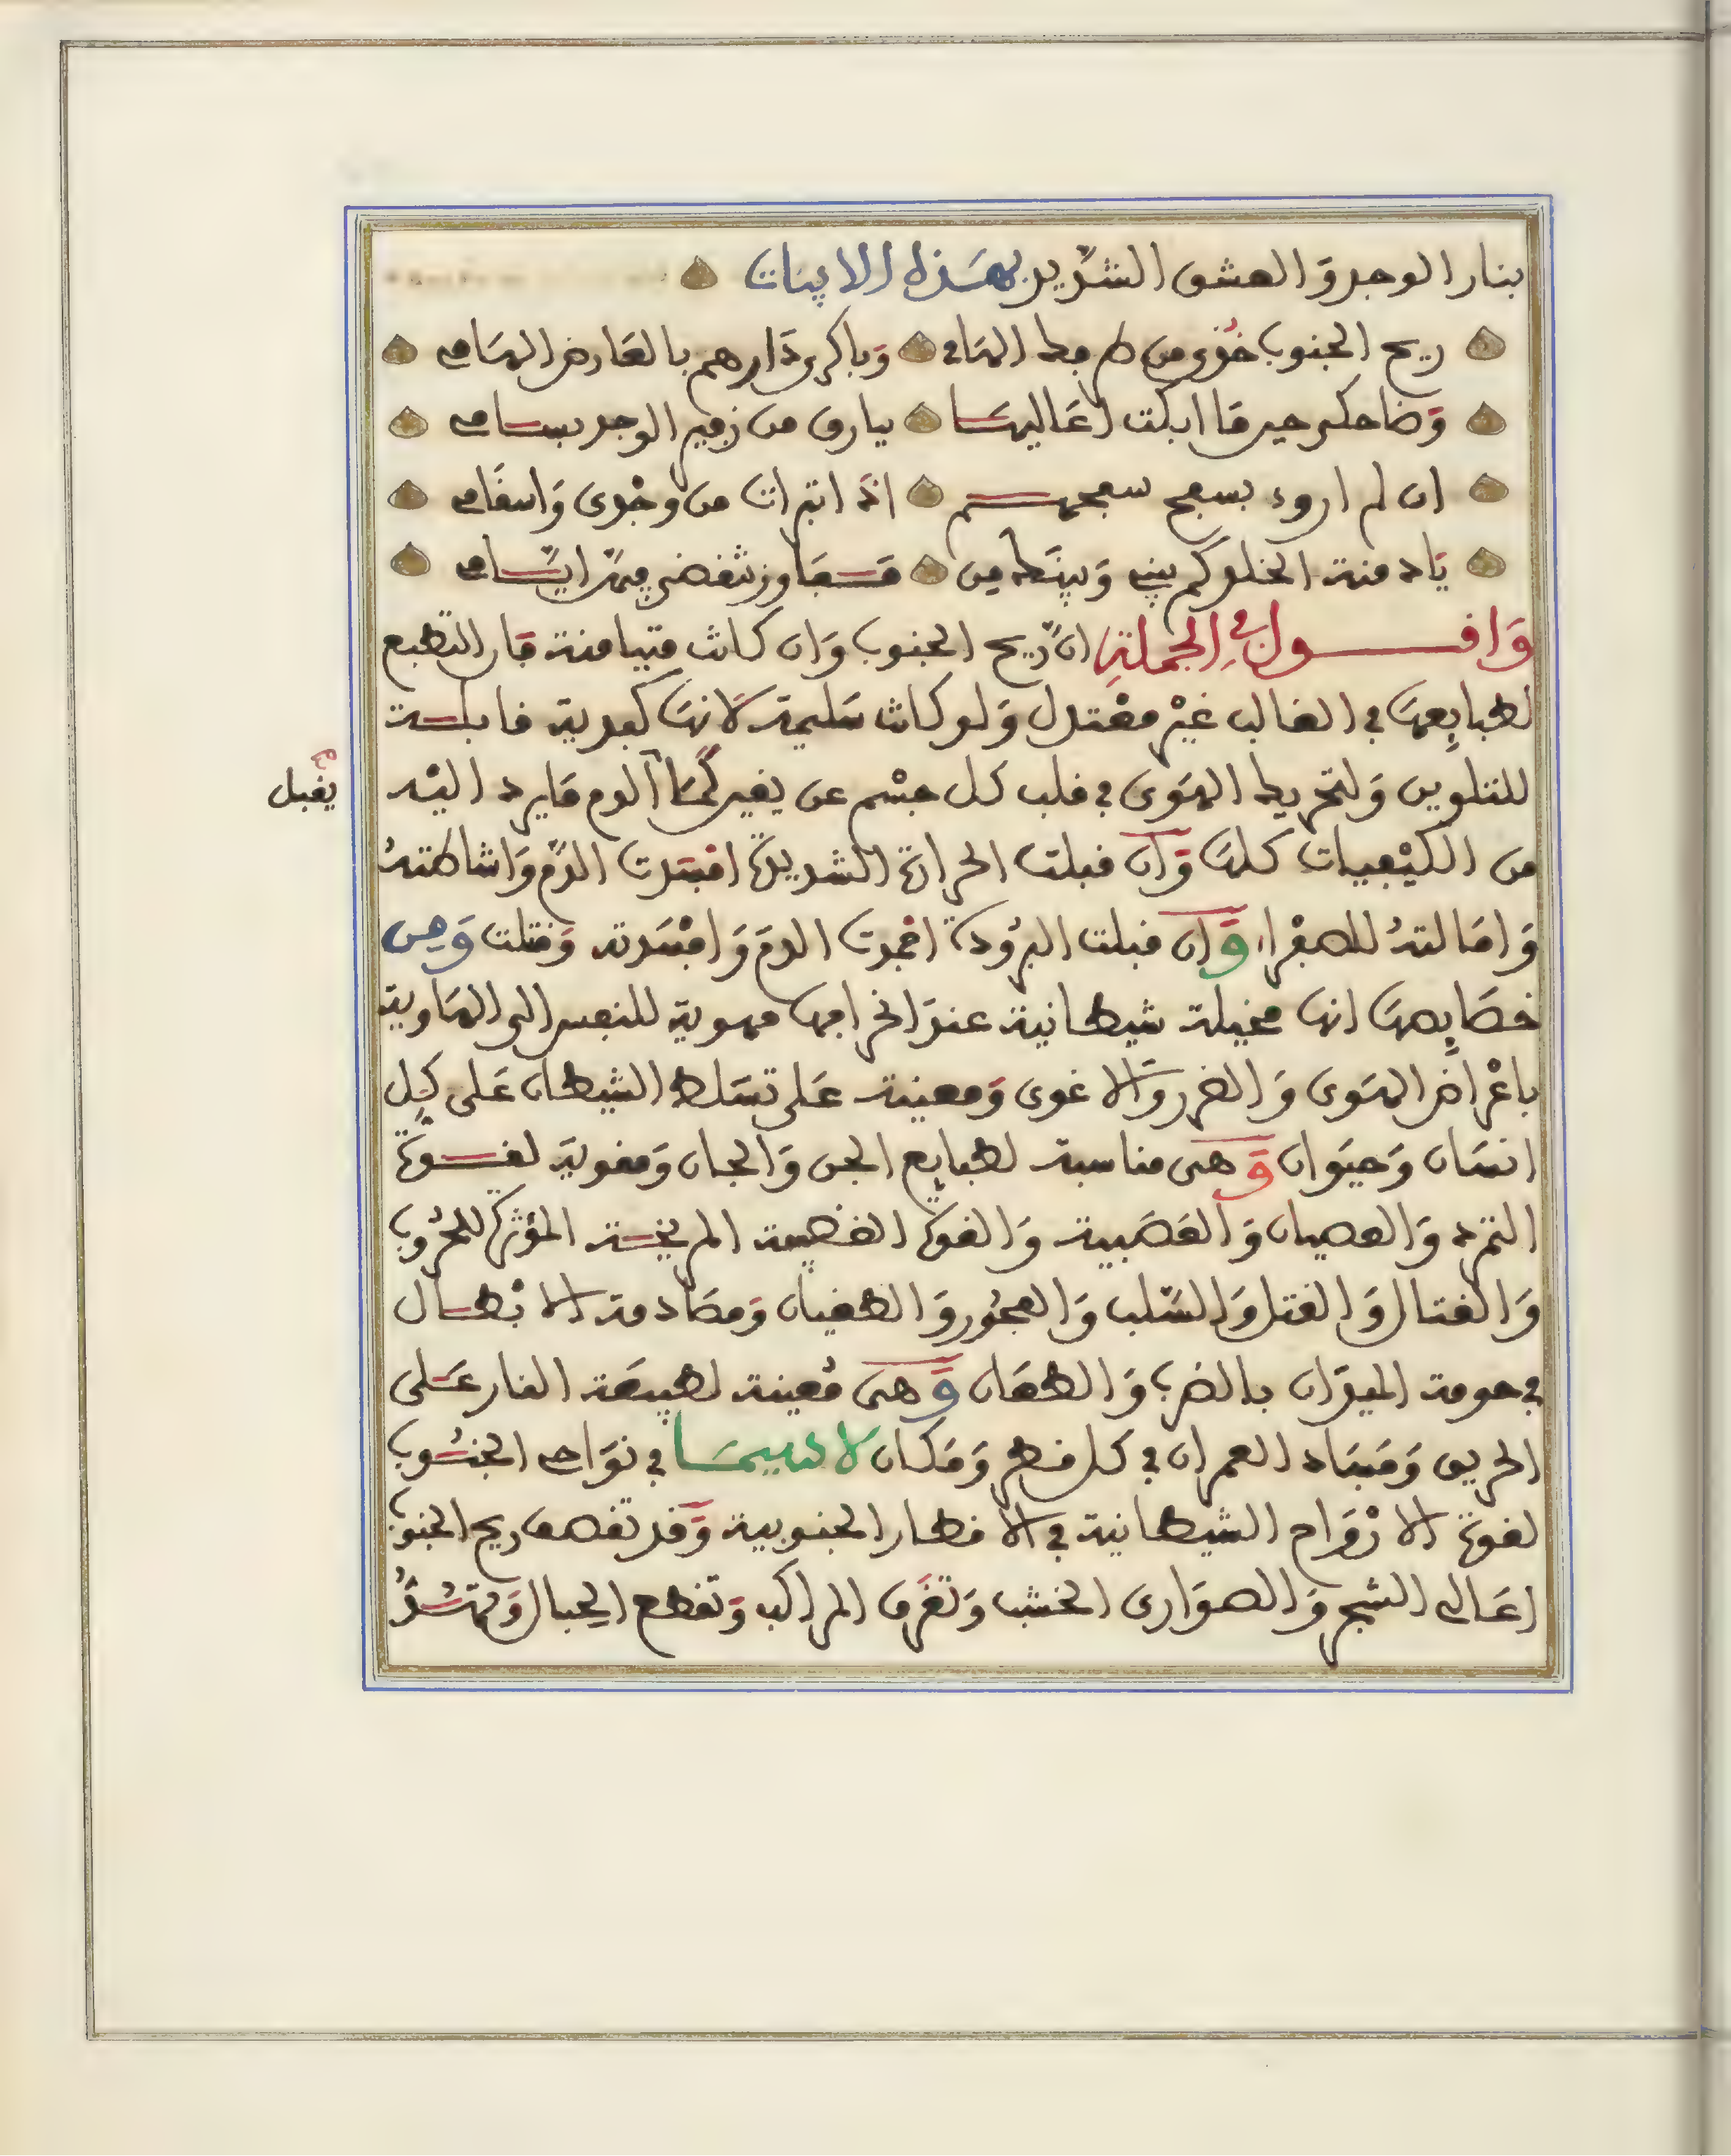 بنار الوجد وَالعشق الشديد بهَذه الابيات
ريح الجنوب خُذى من طرفك الهَامى وَباكرى دَارهم بالعَارض الهَامى
وَضاحكى حين مَا ابكت اعَاليهَا ببارق من زفير الوجد بسامى
ان لم اروى بسفح سفحهم اذا تبرات من وجْدى وَاسقَامى
يَا دمنة الخلو كم بينى وَبينَك من مَعَاوز تنقضى فيهَن ايَّامى
وَاقول فى الجملةِ انَّ ريح الجنوب وَان كانت متيامنة فان التطبع
لطبايعهَا فى الغالب غيْر معْتدل وَلو كانت سَليمة لَانهَا كبدية قابلة
للتلوين وَلتحريك الهَوى فى قلب كل جسْم عن يغير كُمَا الدم مَا يرد اليْه
من الكيْفيات كلهَا وَان قبلت الحرارة الشديدة افسَدت الدَّم وَاشاطتهُ
وَامَالتهُ للصفْراء وَان قبلت البرُودة اخمدت الدمَ وَافسَدته وَقتلت وَمن
خصَايِصهَا انها مخيلة شيطانية عندَ اخراجها مهوية للنفس الى الهَاوية
باغْراض الهَوى وَالضرر وَالاغوى وَمعينة عَلى تسَلط الشيطان عَلى كل
انسَان وَحيَوان وَهى مناسبة لطبايع الجن وَالجان وَمقوية لقوة
التمرد وَالعصيان وَالعَصَبية وَالقوة الغضبية المريخية المؤثرة للحُروب
وَالقتال وَالقتل وَالسَّلب وَالفجُور وَالطغيان وَمصَادمة الابْطال
فى حومة الميدَان بالضرب وَالطعَان وَهى مُعينة لطبيعَة النار عَلى
الحريق وَفسَاد العمران فى كل قطر وَمَكان لا سيمَا فى نوَاحى الجنُوب
لقوة الارْوَاح الشيطانية فى الاقطار الجنوبية وَقد تقصف ريح الجنوب
اعَالى الشجر وَالصوَارى الخشب وَتغَرق المراكب وَتقطع الحبال وَتهشدُ
يقبل